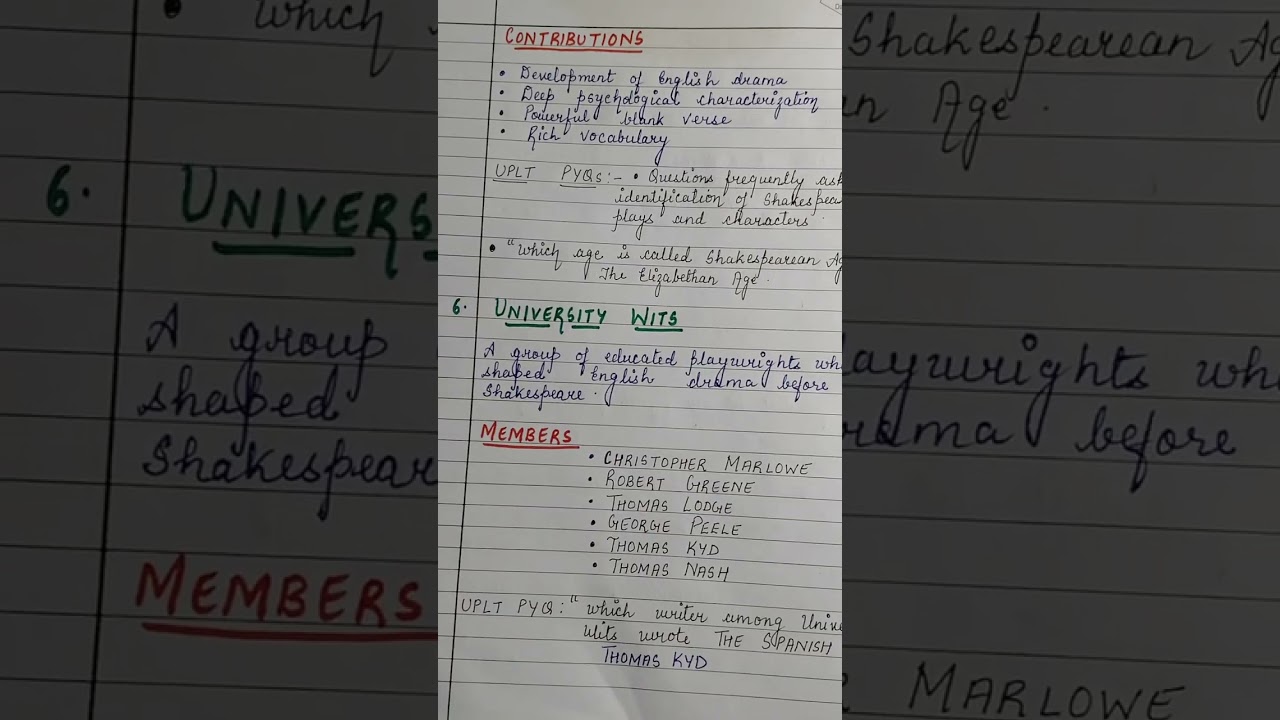 CONTRIBUTIONS
• Development of English drama
• Deep psychological characterization
• Powerful blank verse
• Rich vocabulary
UPLT PYQs:- • Questions frequently ask
identification of Shakespea
plays and characters.
• "Which age is called Shakespearean Ag
The Elizabethan Age.
6. UNIVERSITY WITS
A group of educated playwrights wh
shaped English drama before
Shakespeare.
MEMBERS
• CHRISTOPHER MARLOWE
• ROBERT GREENE
• THOMAS LODGE
• GEORGE PEELE
• THOMAS KYD
• THOMAS NASH
UPLT PYQ: "which writer among Unive
Wits wrote THE SPANISH
THOMAS KYD
• Which
6. UNIVERS
A group
shaped
Shakespear
MEMBERS
Shakespearean Ag
n Age.
laywrights wh
rama before
MARLOWE